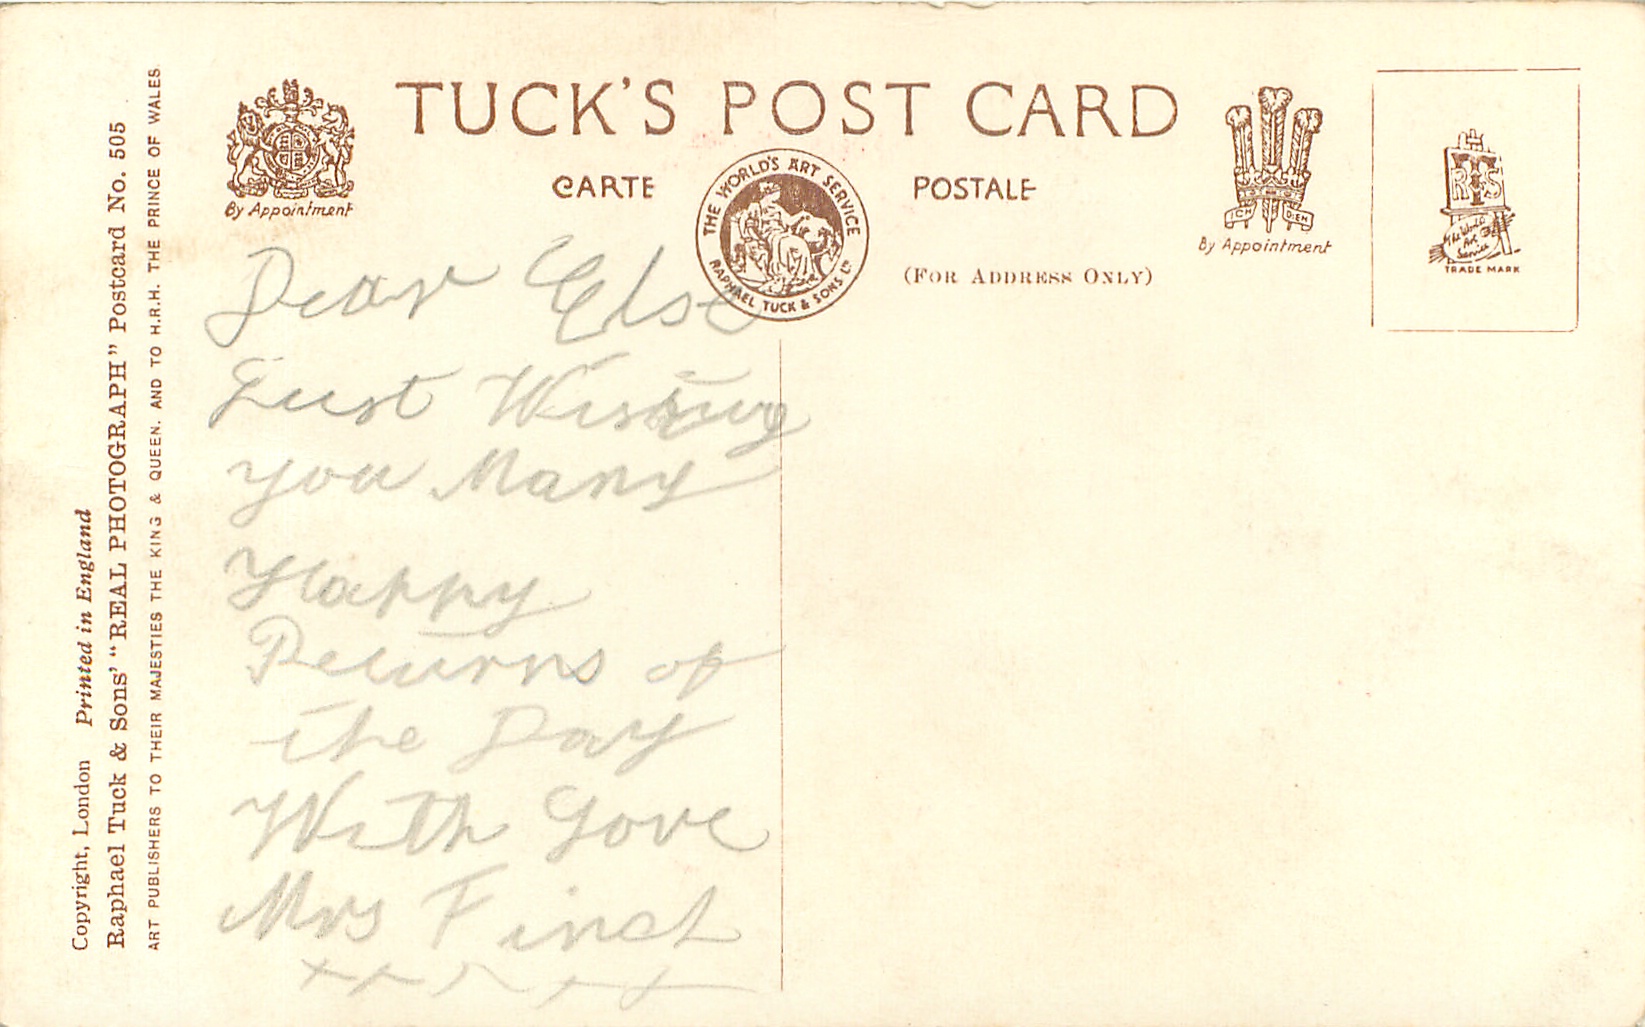 TUCK'S POST CARD
CARTE POSTALE
THE WORLD'S ART SERVICE
RAPHAEL TUCK & SONS LD
(FOR ADDRESS ONLY)
By Appointment
ICH DIEN
By Appointment
RTS
The World
Art
Service
TRADE MARK
Copyright, London Printed in England
Raphael Tuck & Sons' "REAL PHOTOGRAPH" Postcard No. 505
ART PUBLISHERS TO THEIR MAJESTIES THE KING & QUEEN, AND TO H.R.H. THE PRINCE OF WALES
Dear Else
Just Wishing
you Many
Happy
Returns of
the Day
With Love
Mrs Finch